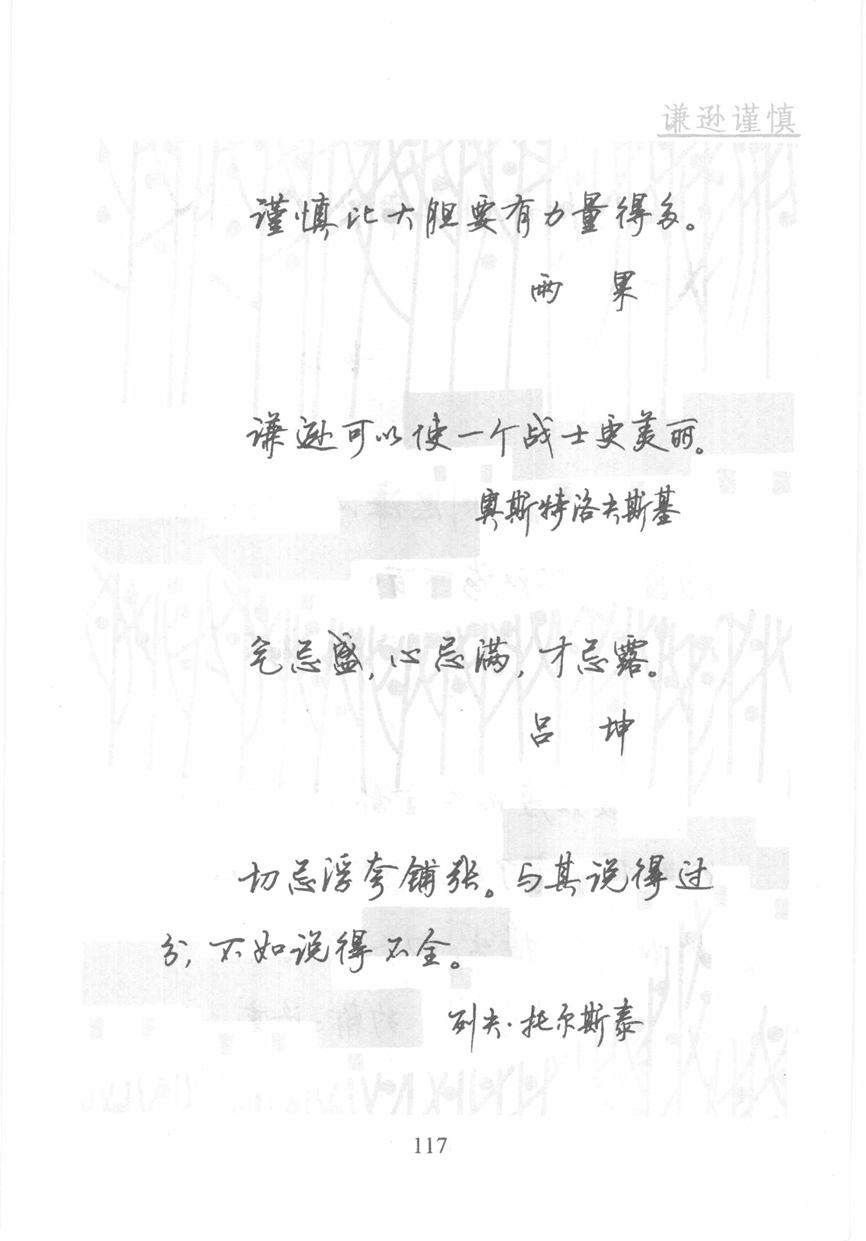 谦逊谨慎
谨慎比大胆要有力量得多。
雨 果
谦逊可以使一个战士更美丽。
奥斯特洛夫斯基
气忌盛,心忌满,才忌露。
吕 坤
切忌浮夸铺张。与其说得过
分,不如说得不全。
列夫·托尔斯泰
117